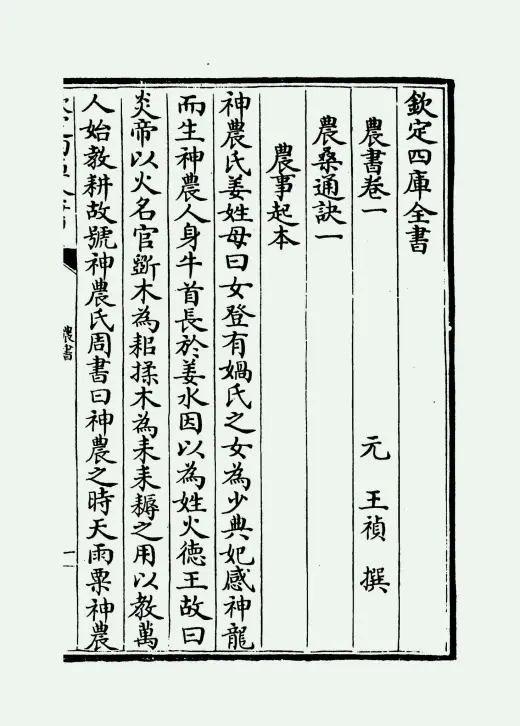 欽定四庫全書
農書卷一
元 王禎 撰
農桑通訣一
農事起本
神農氏姜姓母曰女登有媧氏之女為少典妃感神龍
而生神農人身牛首長於姜水因以為姓火德王故曰
炎帝以火名官斲木為耜揉木為耒耒耨之用以教萬
人始教耕故號神農氏周書曰神農之時天雨粟神農
農書
一